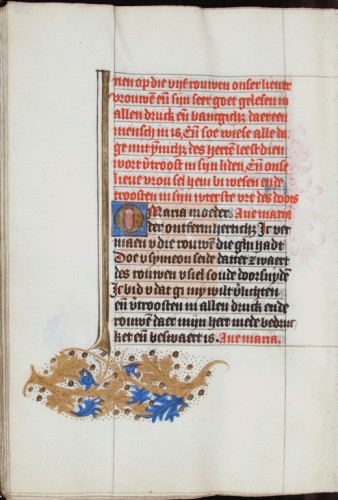 nen op die vijf rouwen onser liever
vrouwē eñ sijn seer goet gelesen in
allen druck eñ
mensch in is Eñ soe wie se alle da
ge mit ynnich; des herte leest dien
wort ṽtroost in sijn liden Eñ onse
lieve vrou sel hem bi wesen eñ
troosten in sijn uterste vre des doots
O Maria moeder Aue maria
der ontfermherticħ; Ic ver
maen v die rouwē die ghi hadt
Doe v symeon seide dattet zwaert
des rouwen v siel soude doorsnydē
Ic bid v dat gi my wilt ṽlichten
eñ ṽtroosten in allen druck ende
rouwē daer mijn herte mede bedruc
ket eñ beswaert is. Aue maria.